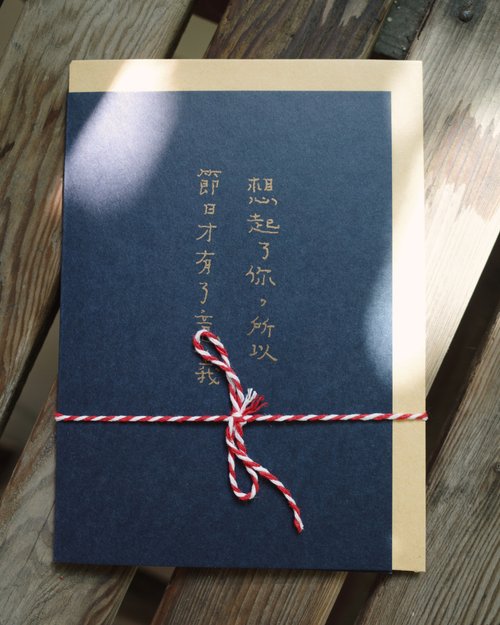 想起了你，所以
節日才有了意義